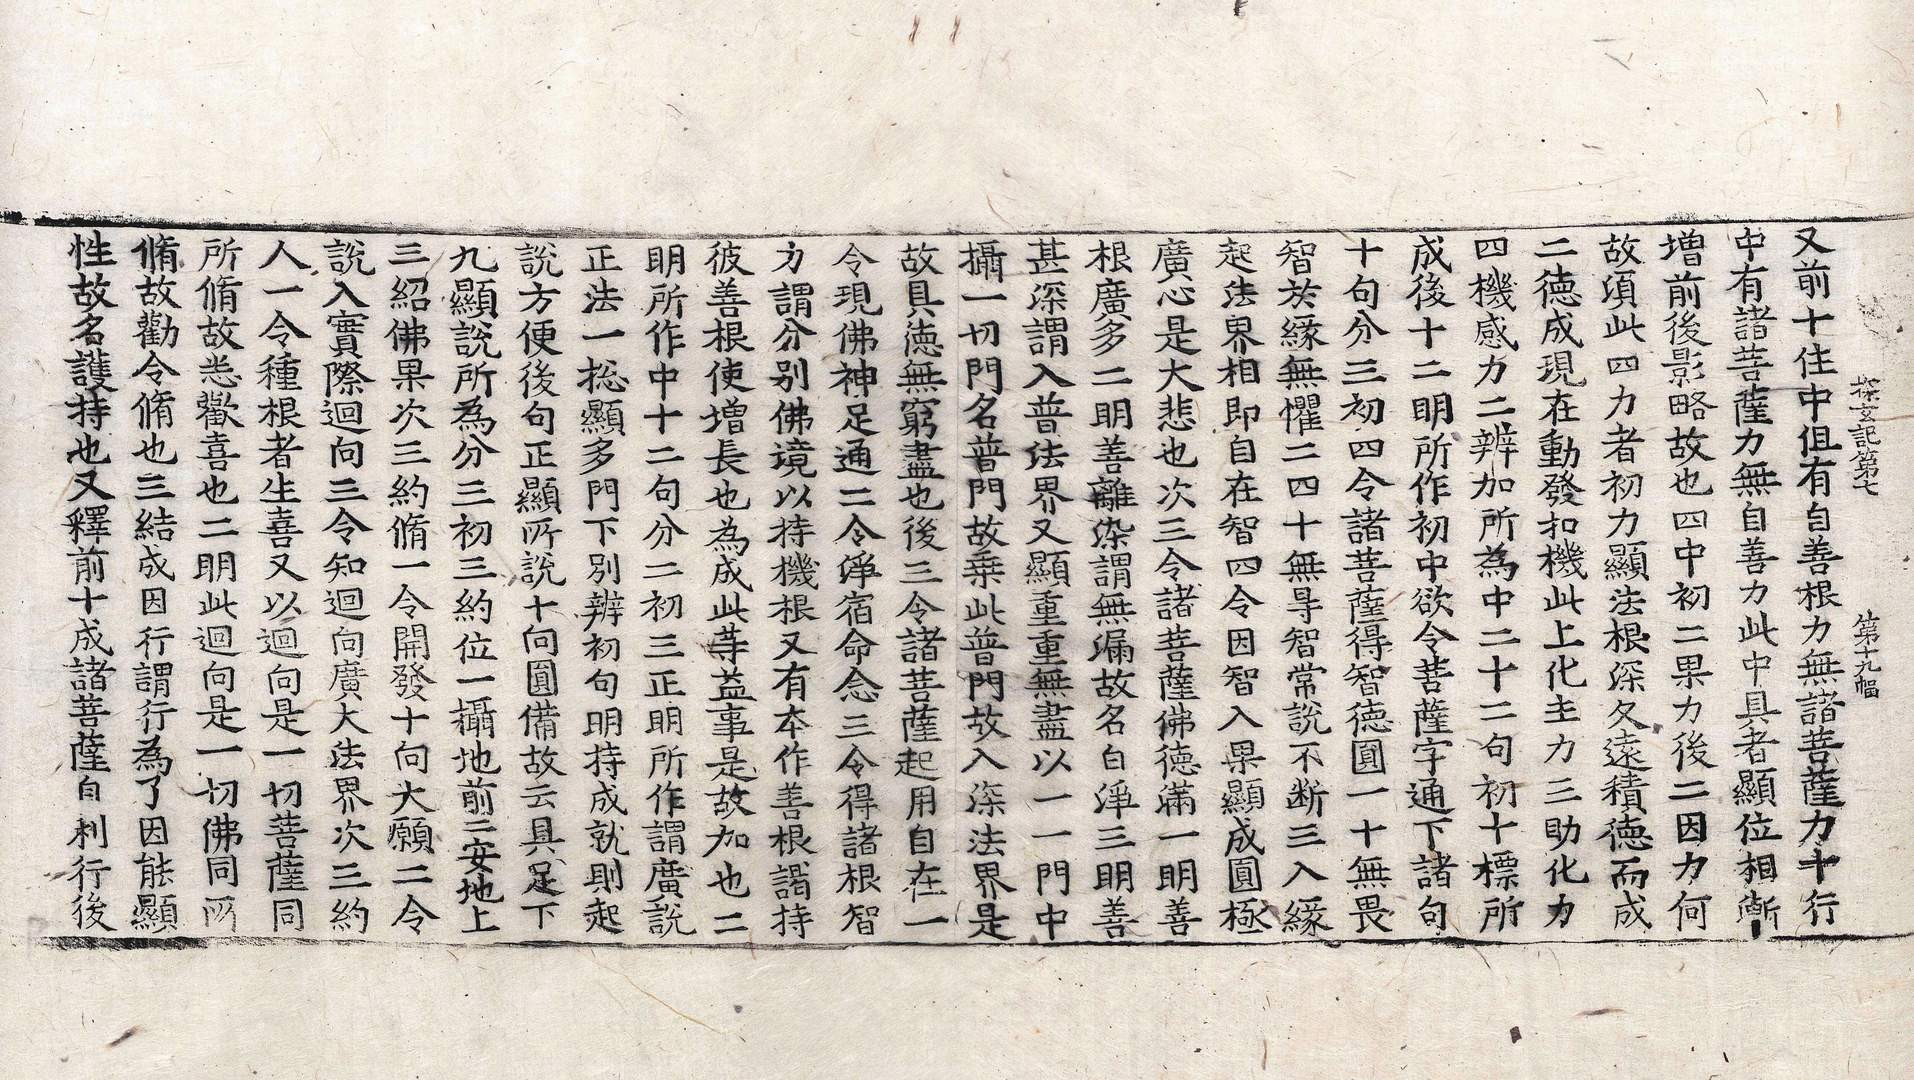 探玄記第七 第十九幅
又前十住中但有自善根力無諸菩薩力十行
中有諸菩薩力無自善力此中具者顯位相漸
增前後影略故也四中初二果力後二因力何
故須此四力者初力顯法根深久遠積德而成
二德成現在動發扣機此上化主力三助化力
四機感力二辨加所為中二十二句初十標所
成後十二明所作初中欲令菩薩字通下諸句
十句分三初四令諸菩薩得智德圓一十無畏
智於緣無懼二四十無㝵智常說不斷三入緣
起法界相即自在智四令因智入果顯成圓極
廣心是大悲也次三令諸菩薩佛德滿一明善
根廣多二明善離染謂無漏故名白淨三明善
甚深謂入普法界又顯重重無盡以一一門中
攝一切門名普門故乗此普門故入深法界是
故具德無窮盡也後三令諸菩薩起用自在一
令現佛神足通二令淨宿命念三令得諸根智
力謂分别佛境以持機根又有本作善根謂持
彼善根使增長也為成此䓁益事是故加也二
明所作中十二句分二初三正明所作謂廣說
正法一揔顯多門下別辨初句明持成就則起
說方便後句正顯所說十向圓備故云具足下
九顯說所為分三初三約位一攝地前二安地上
三紹佛果次三約脩一令開發十向大願二令
說入實際迴向三令知迴向廣大法界次三約
人一令種根者生喜又以迴向是一切菩薩同
所脩故悉歡喜也二明此迴向是一切佛同所
脩故勸令脩也三結成因行謂行為了因能顯
性故名護持也又釋前十成諸菩薩自利行後